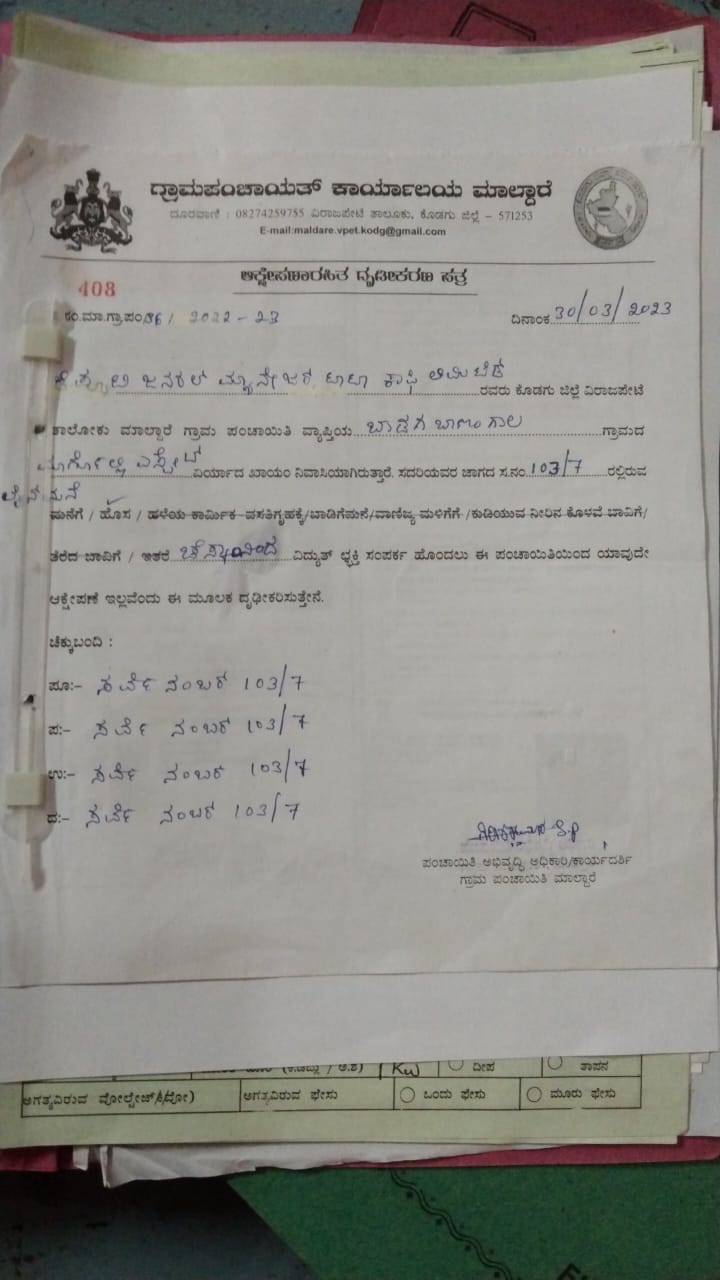 ಗ್ರಾಮಪಂಚಾಯತ್ ಕಾರ್ಯಾಲಯ ಮಾಲ್ದಾರೆ
ದೂರವಾಣಿ : 08274259755 ವಿರಾಜಪೇಟೆ ತಾಲೂಕು, ಕೊಡಗು ಜಿಲ್ಲೆ - 571253
E-mail:maldare.vpet.kodg@gmail.com
ಆಕ್ಷೇಪಣಾರಹಿತ ದೃಢೀಕರಣ ಪತ್ರ
408
ಕಂ.ಮಾ.ಗ್ರಾ.ಪಂ. 56/ 2022-23
ದಿನಾಂಕ 30/03/2023
ಜನರಲ್ ಮ್ಯಾನೇಜರ್, ಟಾಟಾ ಕಾಫಿ ಲಿಮಿಟೆಡ್ ರವರು ಕೊಡಗು ಜಿಲ್ಲೆ ವಿರಾಜಪೇಟೆ
ತಾಲೋಕು ಮಾಲ್ದಾರೆ ಗ್ರಾಮ ಪಂಚಾಯಿತಿ ವ್ಯಾಪ್ತಿಯ ಬಾಡಗ ಬಾಣಂಗಾಲ ಗ್ರಾಮದ
ಮಾರ್ಗೊಲ್ಲಿ ಎಸ್ಟೇಟ್ ಏರಿಯಾದ ಖಾಯಂ ನಿವಾಸಿಯಾಗಿರುತ್ತಾರೆ. ಸದರಿಯವರ ಜಾಗದ ಸ.ನಂ. 103/7 ರಲ್ಲಿರುವ
ಲೈನ್ ಮನೆ
ಮನೆಗೆ / ಹೊಸ / ಹಳೆಯ ಕಾರ್ಮಿಕ ವಸತಿಗೃಹಕ್ಕೆ/ಬಾಡಿಗೆಮನೆ/ವಾಣಿಜ್ಯ ಮಳಿಗೆಗೆ /ಕುಡಿಯುವ ನೀರಿನ ಕೊಳವೆ ಬಾವಿಗೆ/
ತೆರೆದ ಬಾವಿಗೆ / ಇತರೆ ಚೆಸ್ಕಾಂನಿಂದ ವಿದ್ಯುತ್ ಛ್ಚಕ್ತಿ ಸಂಪರ್ಕ ಹೊಂದಲು ಈ ಪಂಚಾಯಿತಿಯಿಂದ ಯಾವುದೇ
ಆಕ್ಷೇಪಣೆ ಇಲ್ಲವೆಂದು ಈ ಮೂಲಕ ದೃಢೀಕರಿಸುತ್ತೇನೆ.
ಚೆಕ್ಕುಬಂದಿ :
ಪೂ:- ಸರ್ವೆ ನಂಬರ್ 103/7
ಪ:- ಸರ್ವೆ ನಂಬರ್ 103/7
ಉ:- ಸರ್ವೆ ನಂಬರ್ 103/7
ದ:- ಸರ್ವೆ ನಂಬರ್ 103/7
ಪಂಚಾಯಿತಿ ಅಭಿವೃದ್ಧಿ ಅಧಿಕಾರಿ/ಕಾರ್ಯದರ್ಶಿ
ಗ್ರಾಮ ಪಂಚಾಯಿತಿ ಮಾಲ್ದಾರೆ
KW ದೀಪ ತಾಪನ
ಅಗತ್ಯವಿರುವ ಫೇಸು ಒಂದು ಫೇಸು ಮೂರು ಫೇಸು